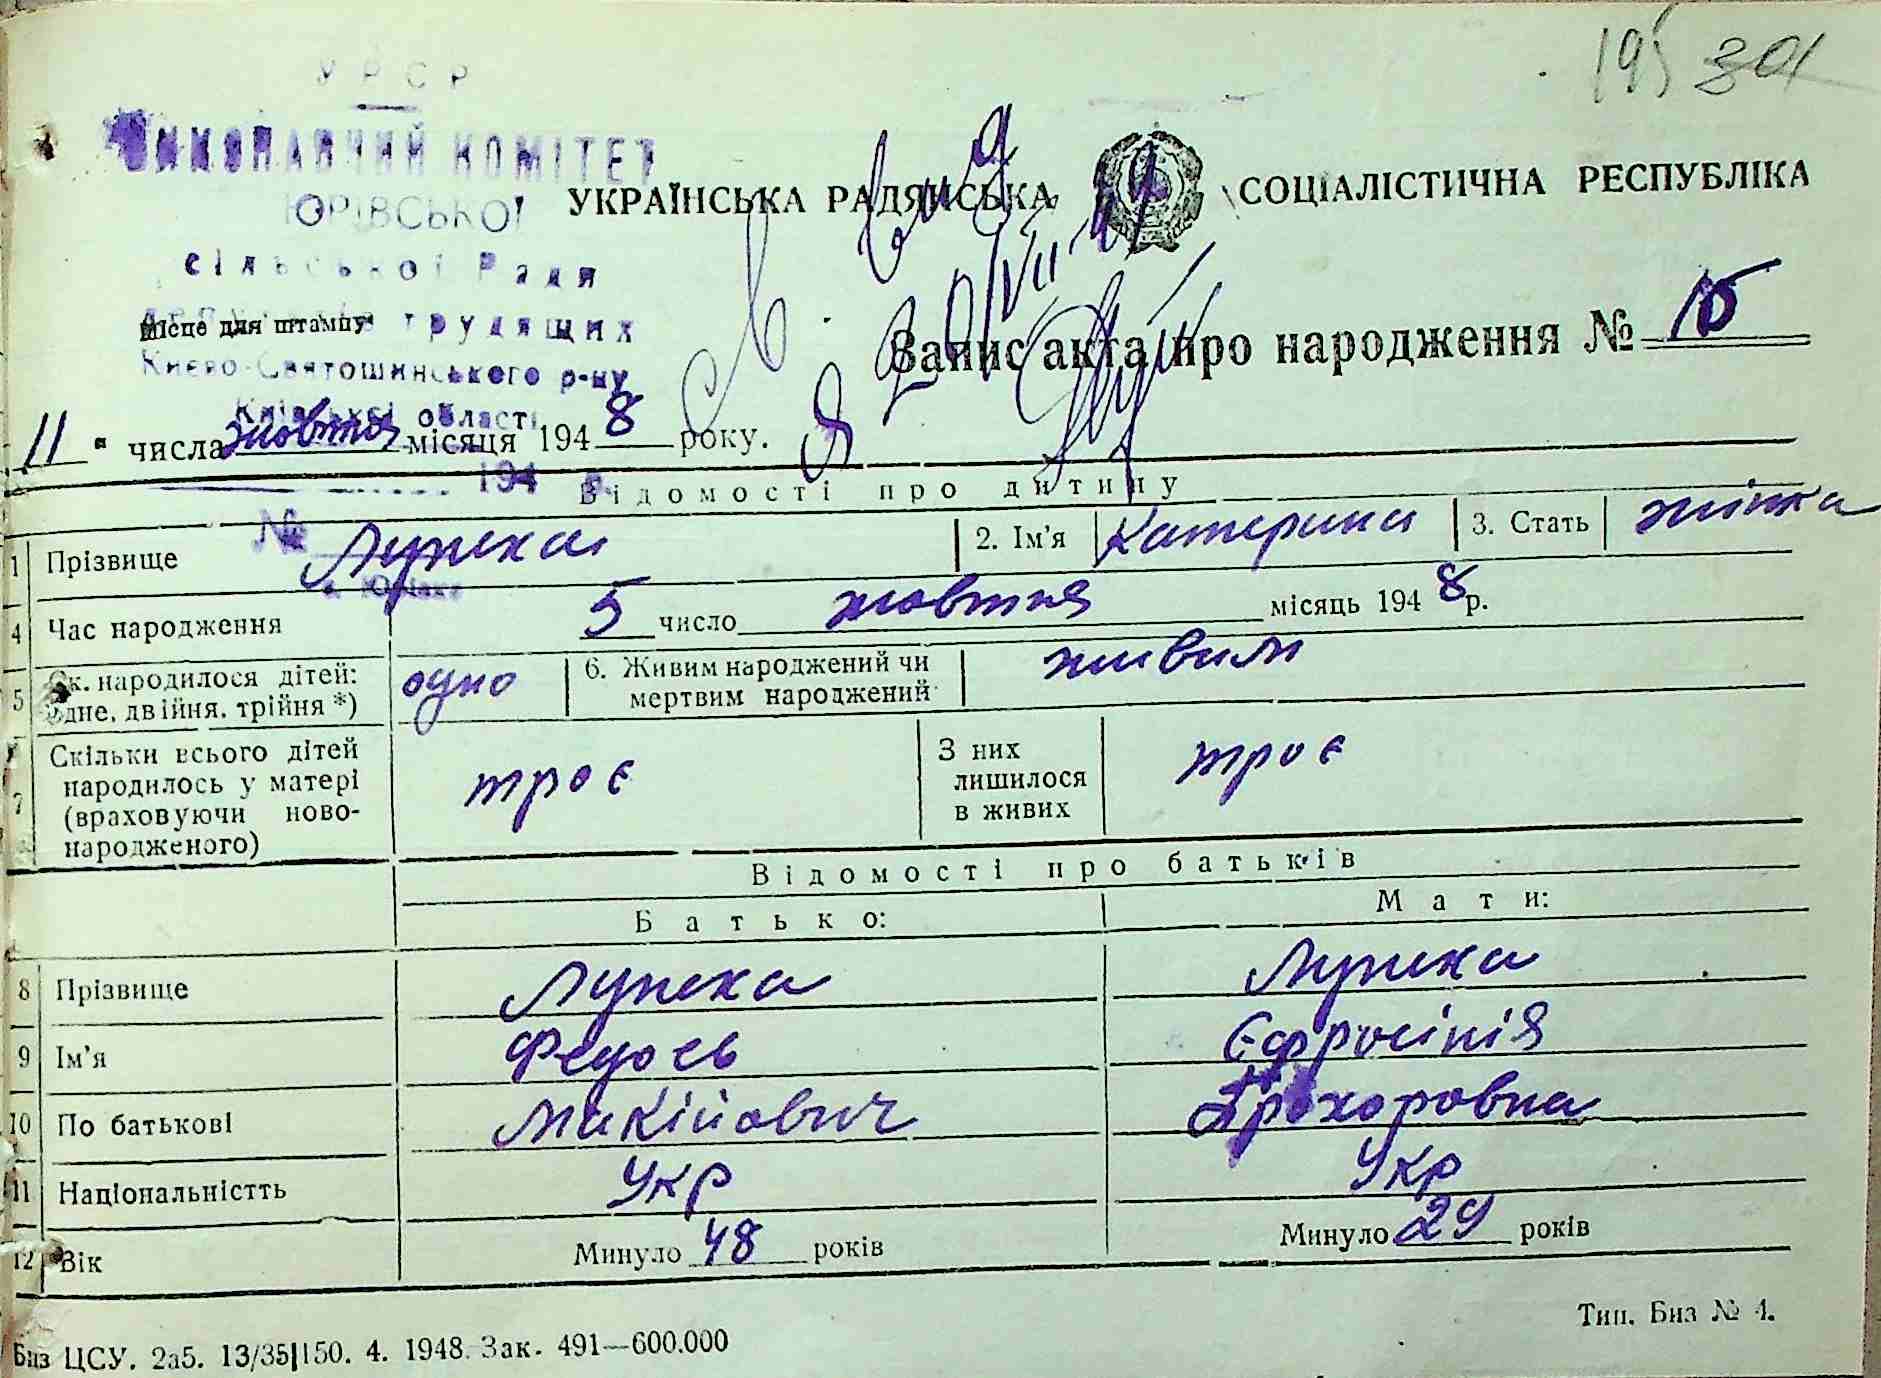 195 301
УРСР
ВИКОНАВЧИЙ КОМІТЕТ
ЮРІВСЬКОЇ
сільської Ради
трудящих
Києво-Святошинського р-ну
Київської області
194 р.
№
с. Юрівка
Місце для штампу
УКРАЇНСЬКА РАДЯНСЬКА СОЦІАЛІСТИЧНА РЕСПУБЛІКА
Запис акта про народження № 15
11 " числа жовтня місяця 1948 року.
Відомості про дитину
1 Прізвище Лупека 2. Ім'я Катерина 3. Стать жінка
4 Час народження 5 число жовтня місяць 1948 р.
5 Ск. народилося дітей: одне, двійня, трійня *) одно 6. Живим народжений чи мертвим народжений живим
7 Скільки всього дітей народилось у матері (враховуючи новонародженого) троє З них лишилося в живих троє
Відомості про батьків
Батько: Мати:
8 Прізвище Лупека Лупека
9 Ім'я Федось Єфросінія
10 По батькові Микійович Прохоровна
11 Національністть Укр Укр
12 Вік Минуло 48 років Минуло 29 років
Биз ЦСУ. 2а5. 13/35|150. 4. 1948. Зак. 491—600.000
Тип. Биз № 4.